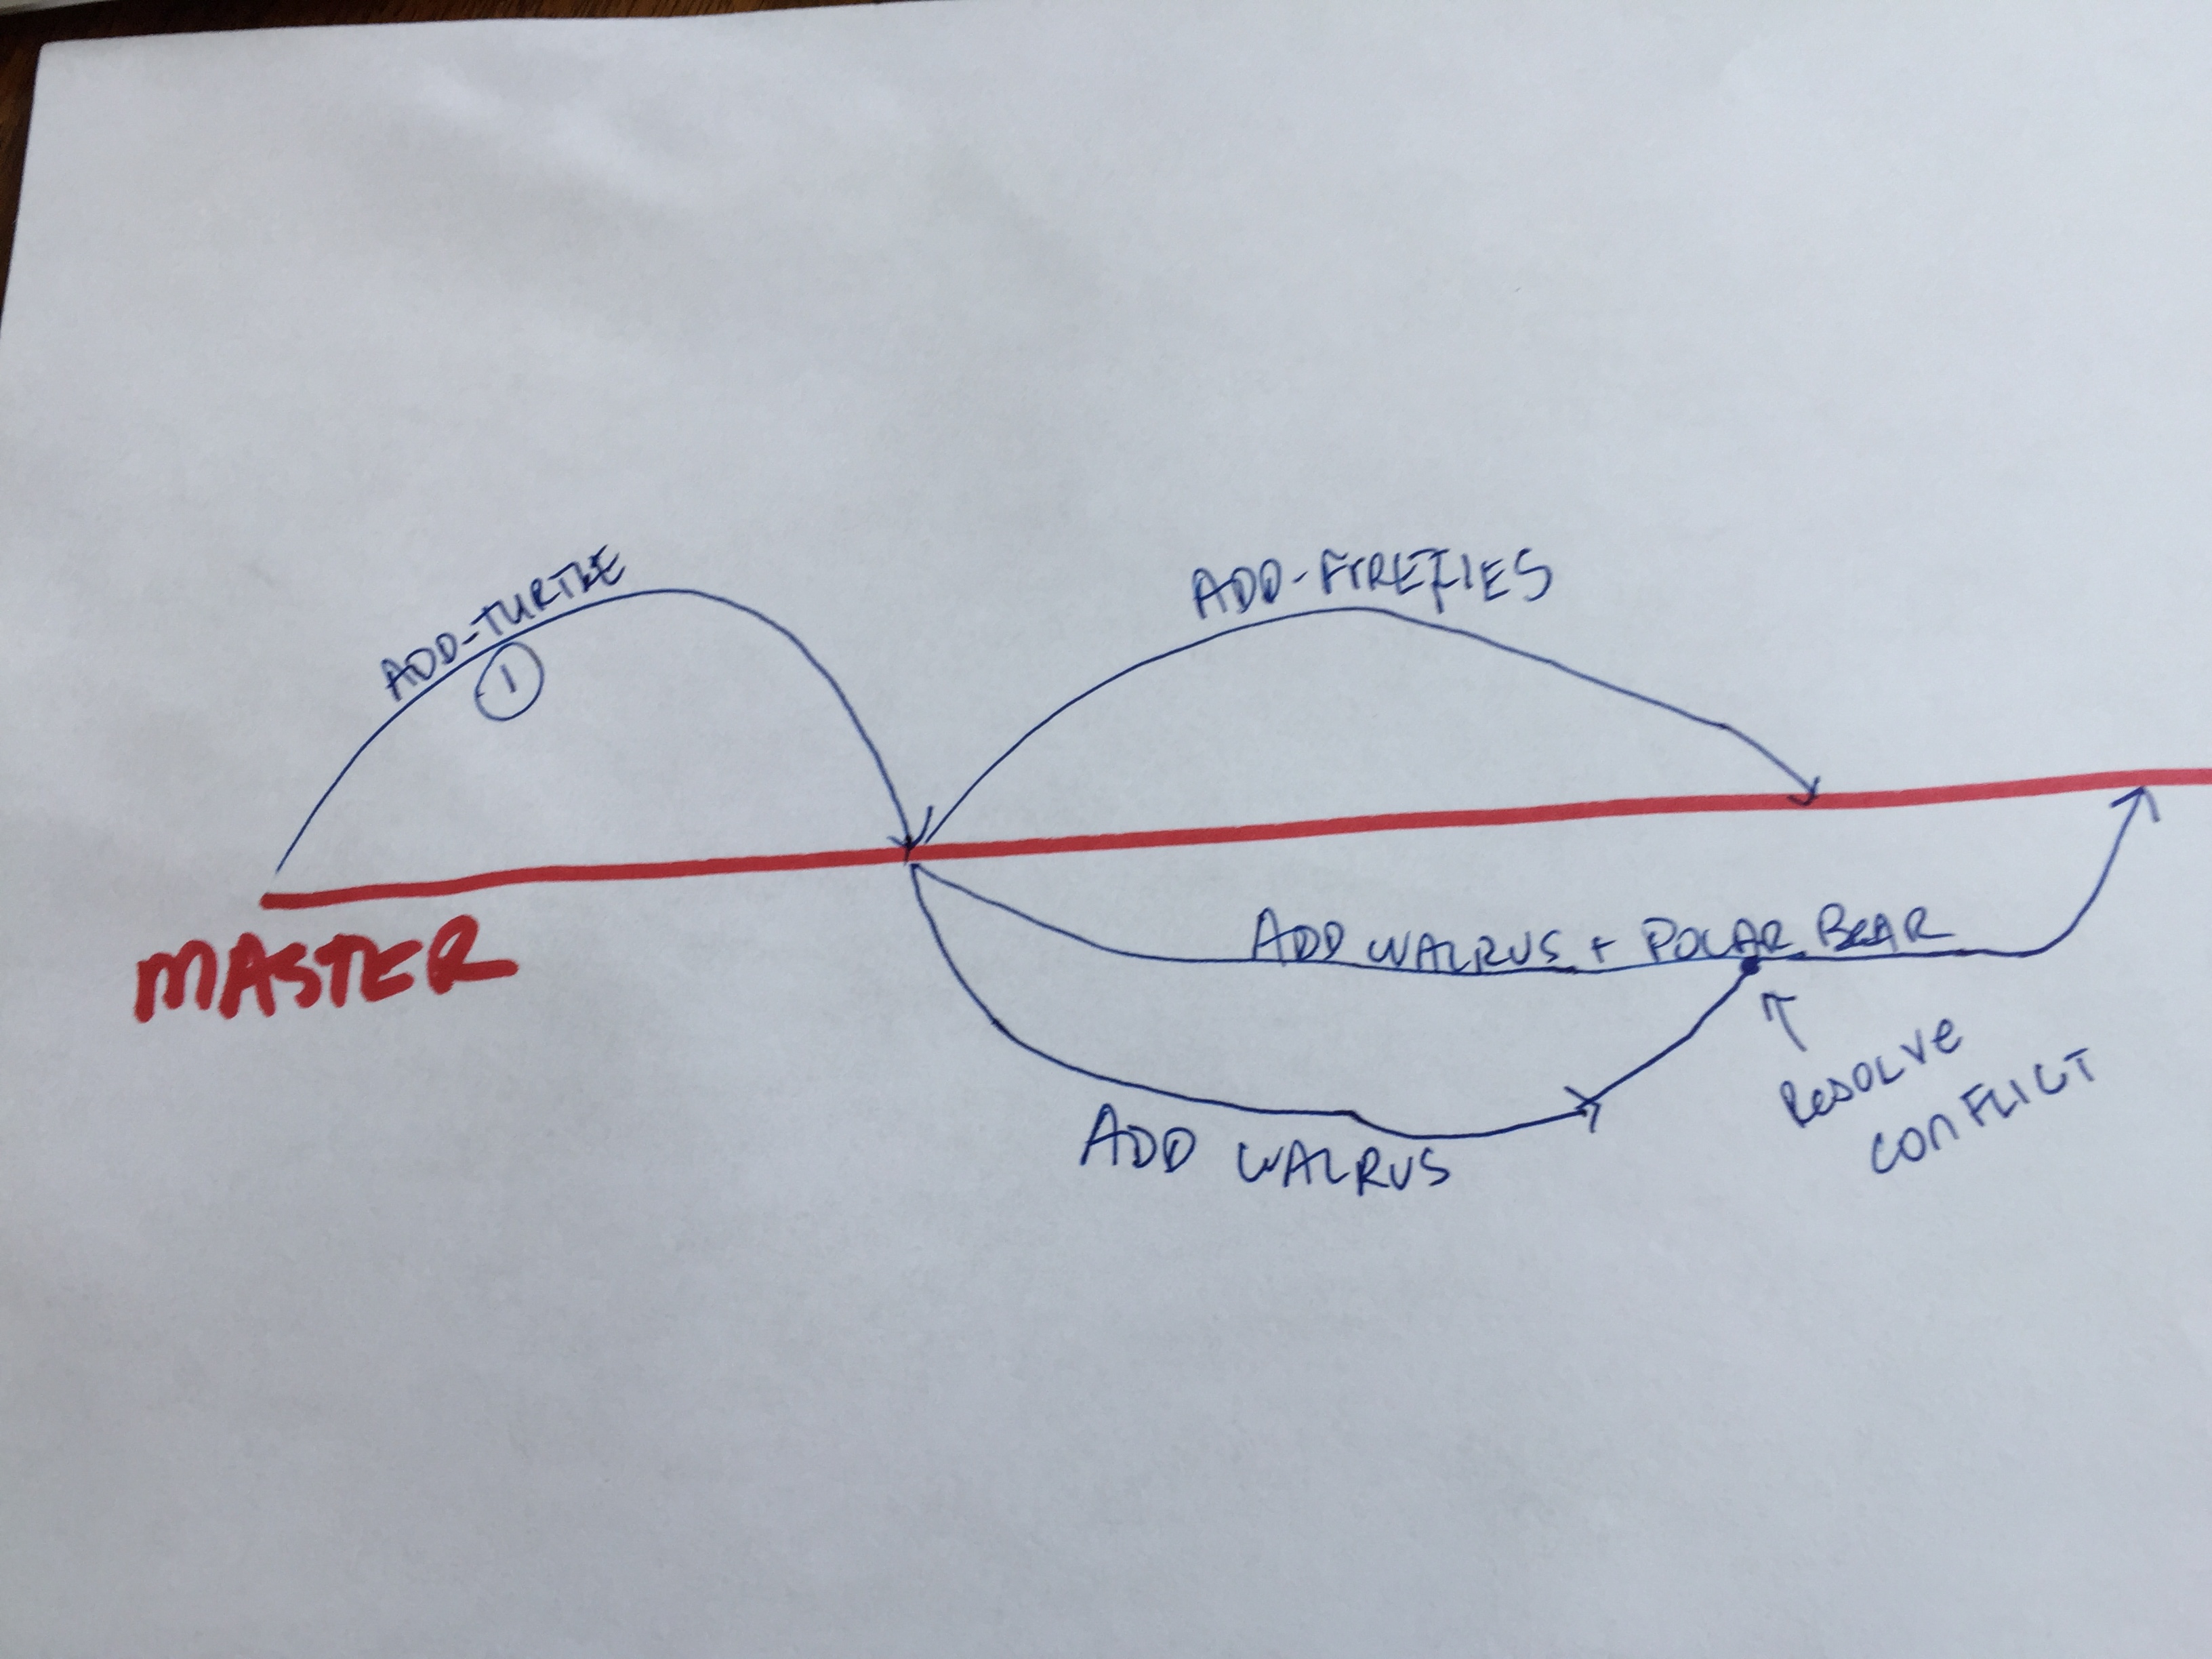 MASTER
ADD-TURTLE
1
ADD-FIREFIES
ADD WALRUS + POLAR BEAR
ADD WALRUS
RESOLVE
CONFLICT